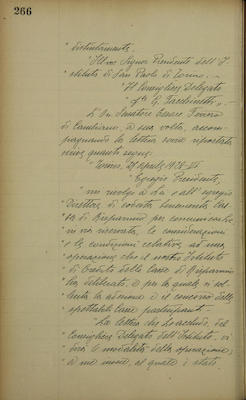 266
" distintamente.
" Ill.mo Signor Presidente dell'I-
" stituto di San Paolo di Torino. –
" Il Consigliere Delegato
" f.to G. Facchinetti „. –
L'On. Senatore Cesare Ferrero
di Cambiano, a sua volta, accom-
pagnando la lettera sovra riportata
scrive quanto segue:
" Torino, 27 aprile 1928 - VI
" Egregio Presidente,
" mi rivolgo a Lei e all'egregio
Direttore di codesta benemerita Cas-
sa di Risparmio per comunicarle
in via riservata, le considerazioni
e le condizioni relative ad una
operazione che il nostro Istituto
di Credito delle Casse di Risparmio
ha deliberato, e per la quale si sol-
lecita la adesione e il concorso delle
spettabili Casse partecipanti.
" La lettera che Le accludo, del
Consigliere Delegato dell'Istituto, in-
dica le modalità della operazione;
a me invece, al quale è stato,